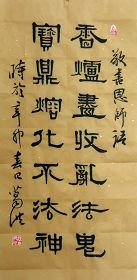 敬书恩師語
香爐盡收亂法鬼
寶鼎熔化不法神
時於辛卯春日